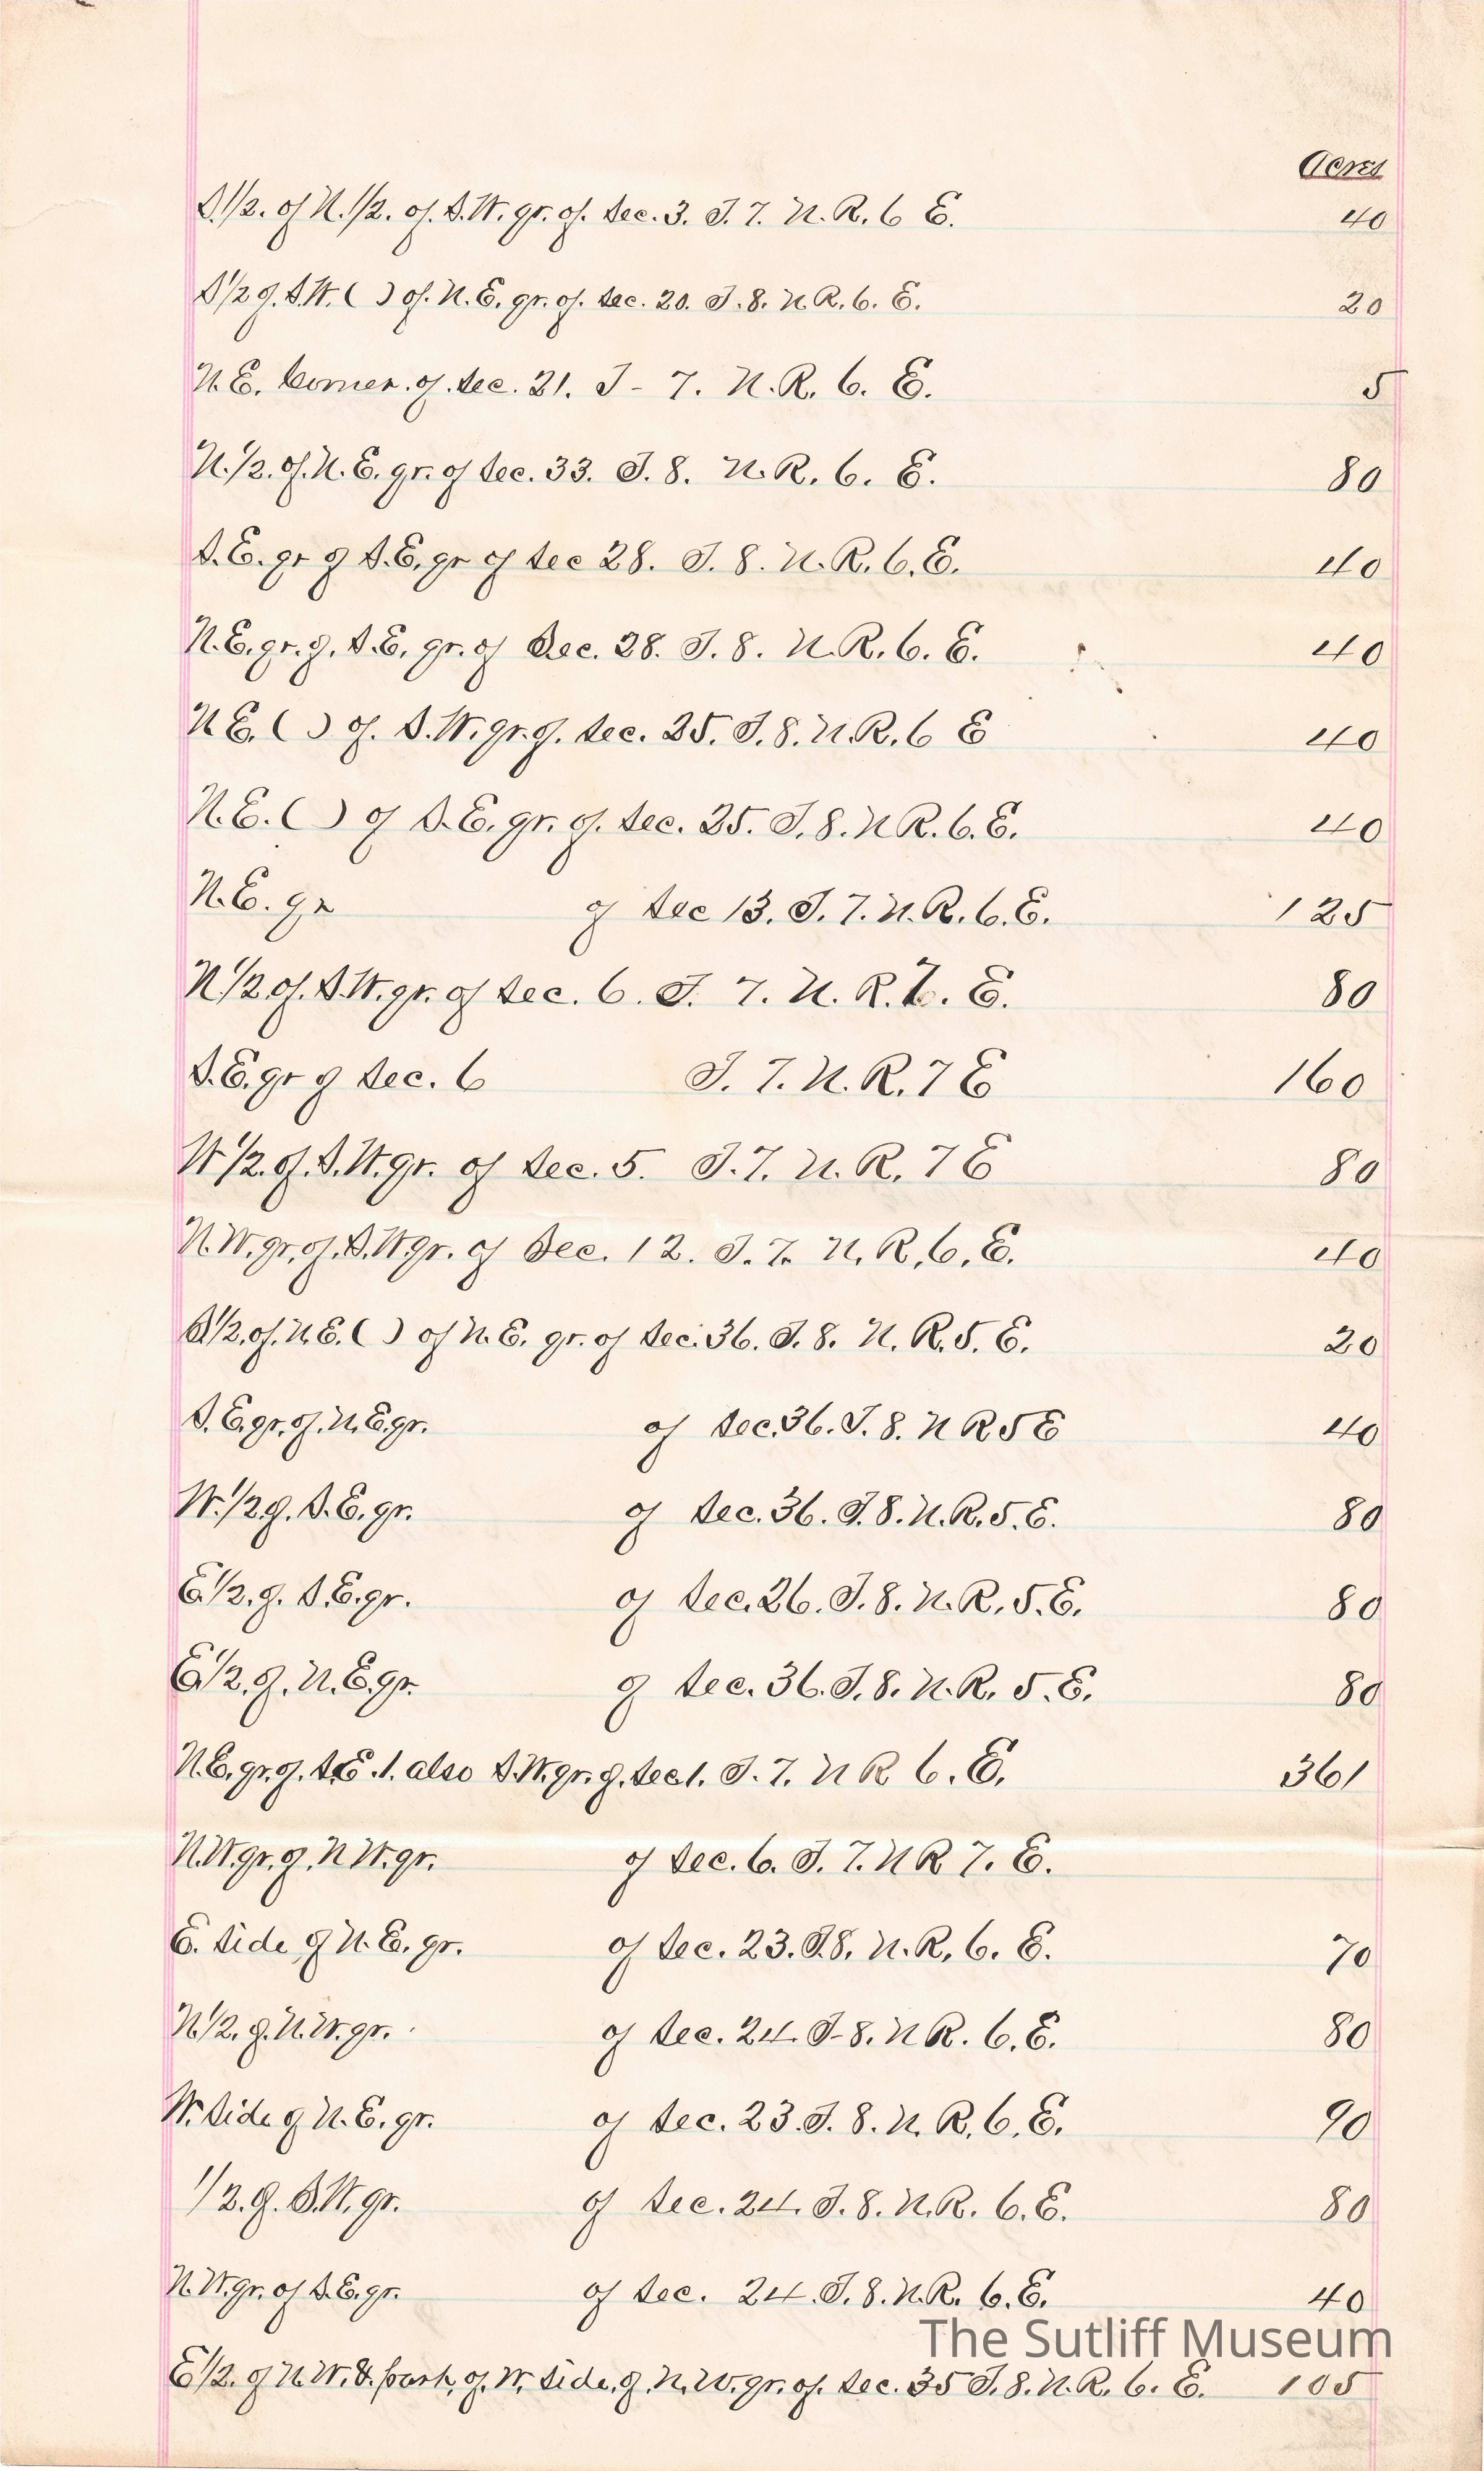 Acres
S.1/2. of N.1/2. of. S.W. qr. of. Sec. 3. T. 7. N. R. 6 E. 40
S1/2 of. S.W. ( ) of. N.E. qr. of. Sec. 20. T. 8. N. R. 6. E. 20
N.E. Corner. of. Sec. 21. T - 7. N. R. 6. E. 5
N.1/2. of. N.E. qr. of Sec. 33. T. 8. N. R. 6. E. 80
S.E. qr of S.E. qr of Sec 28. T. 8. N. R. 6. E. 40
N.E. qr. of. S.E. qr. of Sec. 28. T. 8. N. R. 6. E. 40
N E. ( ) of. S.W. qr. of. Sec. 25. T. 8. N. R. 6 E 40
N.E. ( ) of S.E. qr. of. Sec. 25. T. 8. N R. 6. E. 40
N.E. qr of Sec 13. T. 7. N. R. 6. E. 125
N1/2 of. S.W. qr. of Sec. 6. T. 7. N. R. 7. E. 80
S.E. qr of Sec. 6 T. 7. N. R. 7 E 160
W1/2. of. S.W. qr. of Sec. 5. T. 7. N. R. 7 E 80
N.W. qr. of. S.W qr. of Sec. 12. T. 7. N. R. 6. E. 40
S1/2. of. N.E. ( ) of N.E. qr. of Sec. 36. T. 8. N. R. 5. E. 20
S.E. qr. of. N.E. qr. of Sec. 36. T. 8. N R 5 E 40
W.1/2 of. S.E. qr. of Sec. 36. T. 8. N. R. 5. E. 80
E1/2. of. S.E. qr. of Sec. 26. T. 8. N. R. 5. E. 80
E1/2. of. N.E. qr. of Sec. 36. T. 8. N. R. 5. E. 80
N.E. qr. of. 1. also S.W. qr. of. Sec 1. T. 7. N R 6. E. 361
N.W. qr. of. N W. qr. of Sec. 6. T. 7. N R 7. E.
E. Side of N.E. qr. of Sec. 23. T. 8. N. R. 6. E. 70
N1/2. of. N.W. qr. of Sec. 24. T-8. N R. 6. E. 80
W. Side of N.E. qr. of Sec. 23. T. 8. N. R. 6. E. 90
1/2. of. S.W. qr. of Sec. 24. T. 8. N. R. 6. E. 80
N.W. qr. of S.E. qr. of Sec. 24. T. 8. N. R. 6. E. 40
The Sutliff Museum
E1/2. of N.W. & part, of. W. Side, of. N.W. qr. of. Sec. 35 T. 8. N. R. 6. E. 105